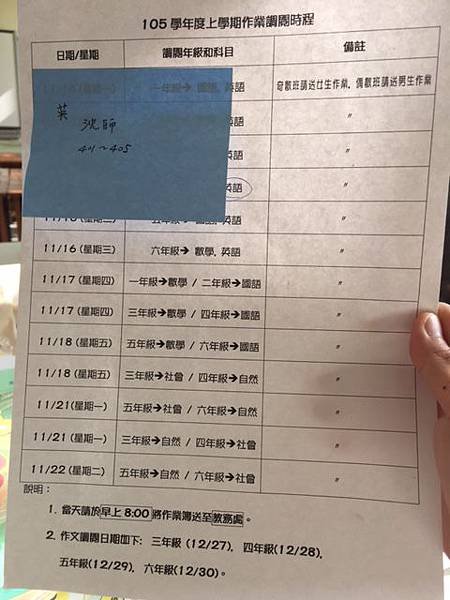 105 學年度上學期作業調閱時程
日期/星期 調閱年級和科目 備註
一年級→ 國語, 英語 奇數班請送女生作業, 偶數班請送男生作業
英語 〃
英語 〃
英語 〃
葉
沈師
401~405
國語, 英語 〃
11/16 (星期三) 六年級→ 數學, 英語 〃
11/17 (星期四) 一年級→數學 / 二年級→國語 〃
11/17 (星期四) 三年級→數學 / 四年級→國語 〃
11/18 (星期五) 五年級→數學 / 六年級→國語 〃
11/18 (星期五) 三年級→社會 / 四年級→自然 〃
11/21(星期一) 五年級→社會 / 六年級→自然 〃
11/21 (星期一) 三年級→自然 / 四年級→社會 〃
11/22 (星期二) 五年級→自然 / 六年級→社會 〃
說明：
1. 當天請於早上 8:00 將作業簿送至教務處。
2. 作文調閱日期如下: 三年級 (12/27), 四年級(12/28),
五年級(12/29), 六年級(12/30)。